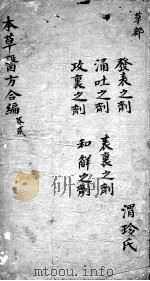 草部
發表之劑
涌吐之劑
攻裏之劑
表裏之劑
和解之劑
渭玲氏
本草醫方合編
www.toutu001.com